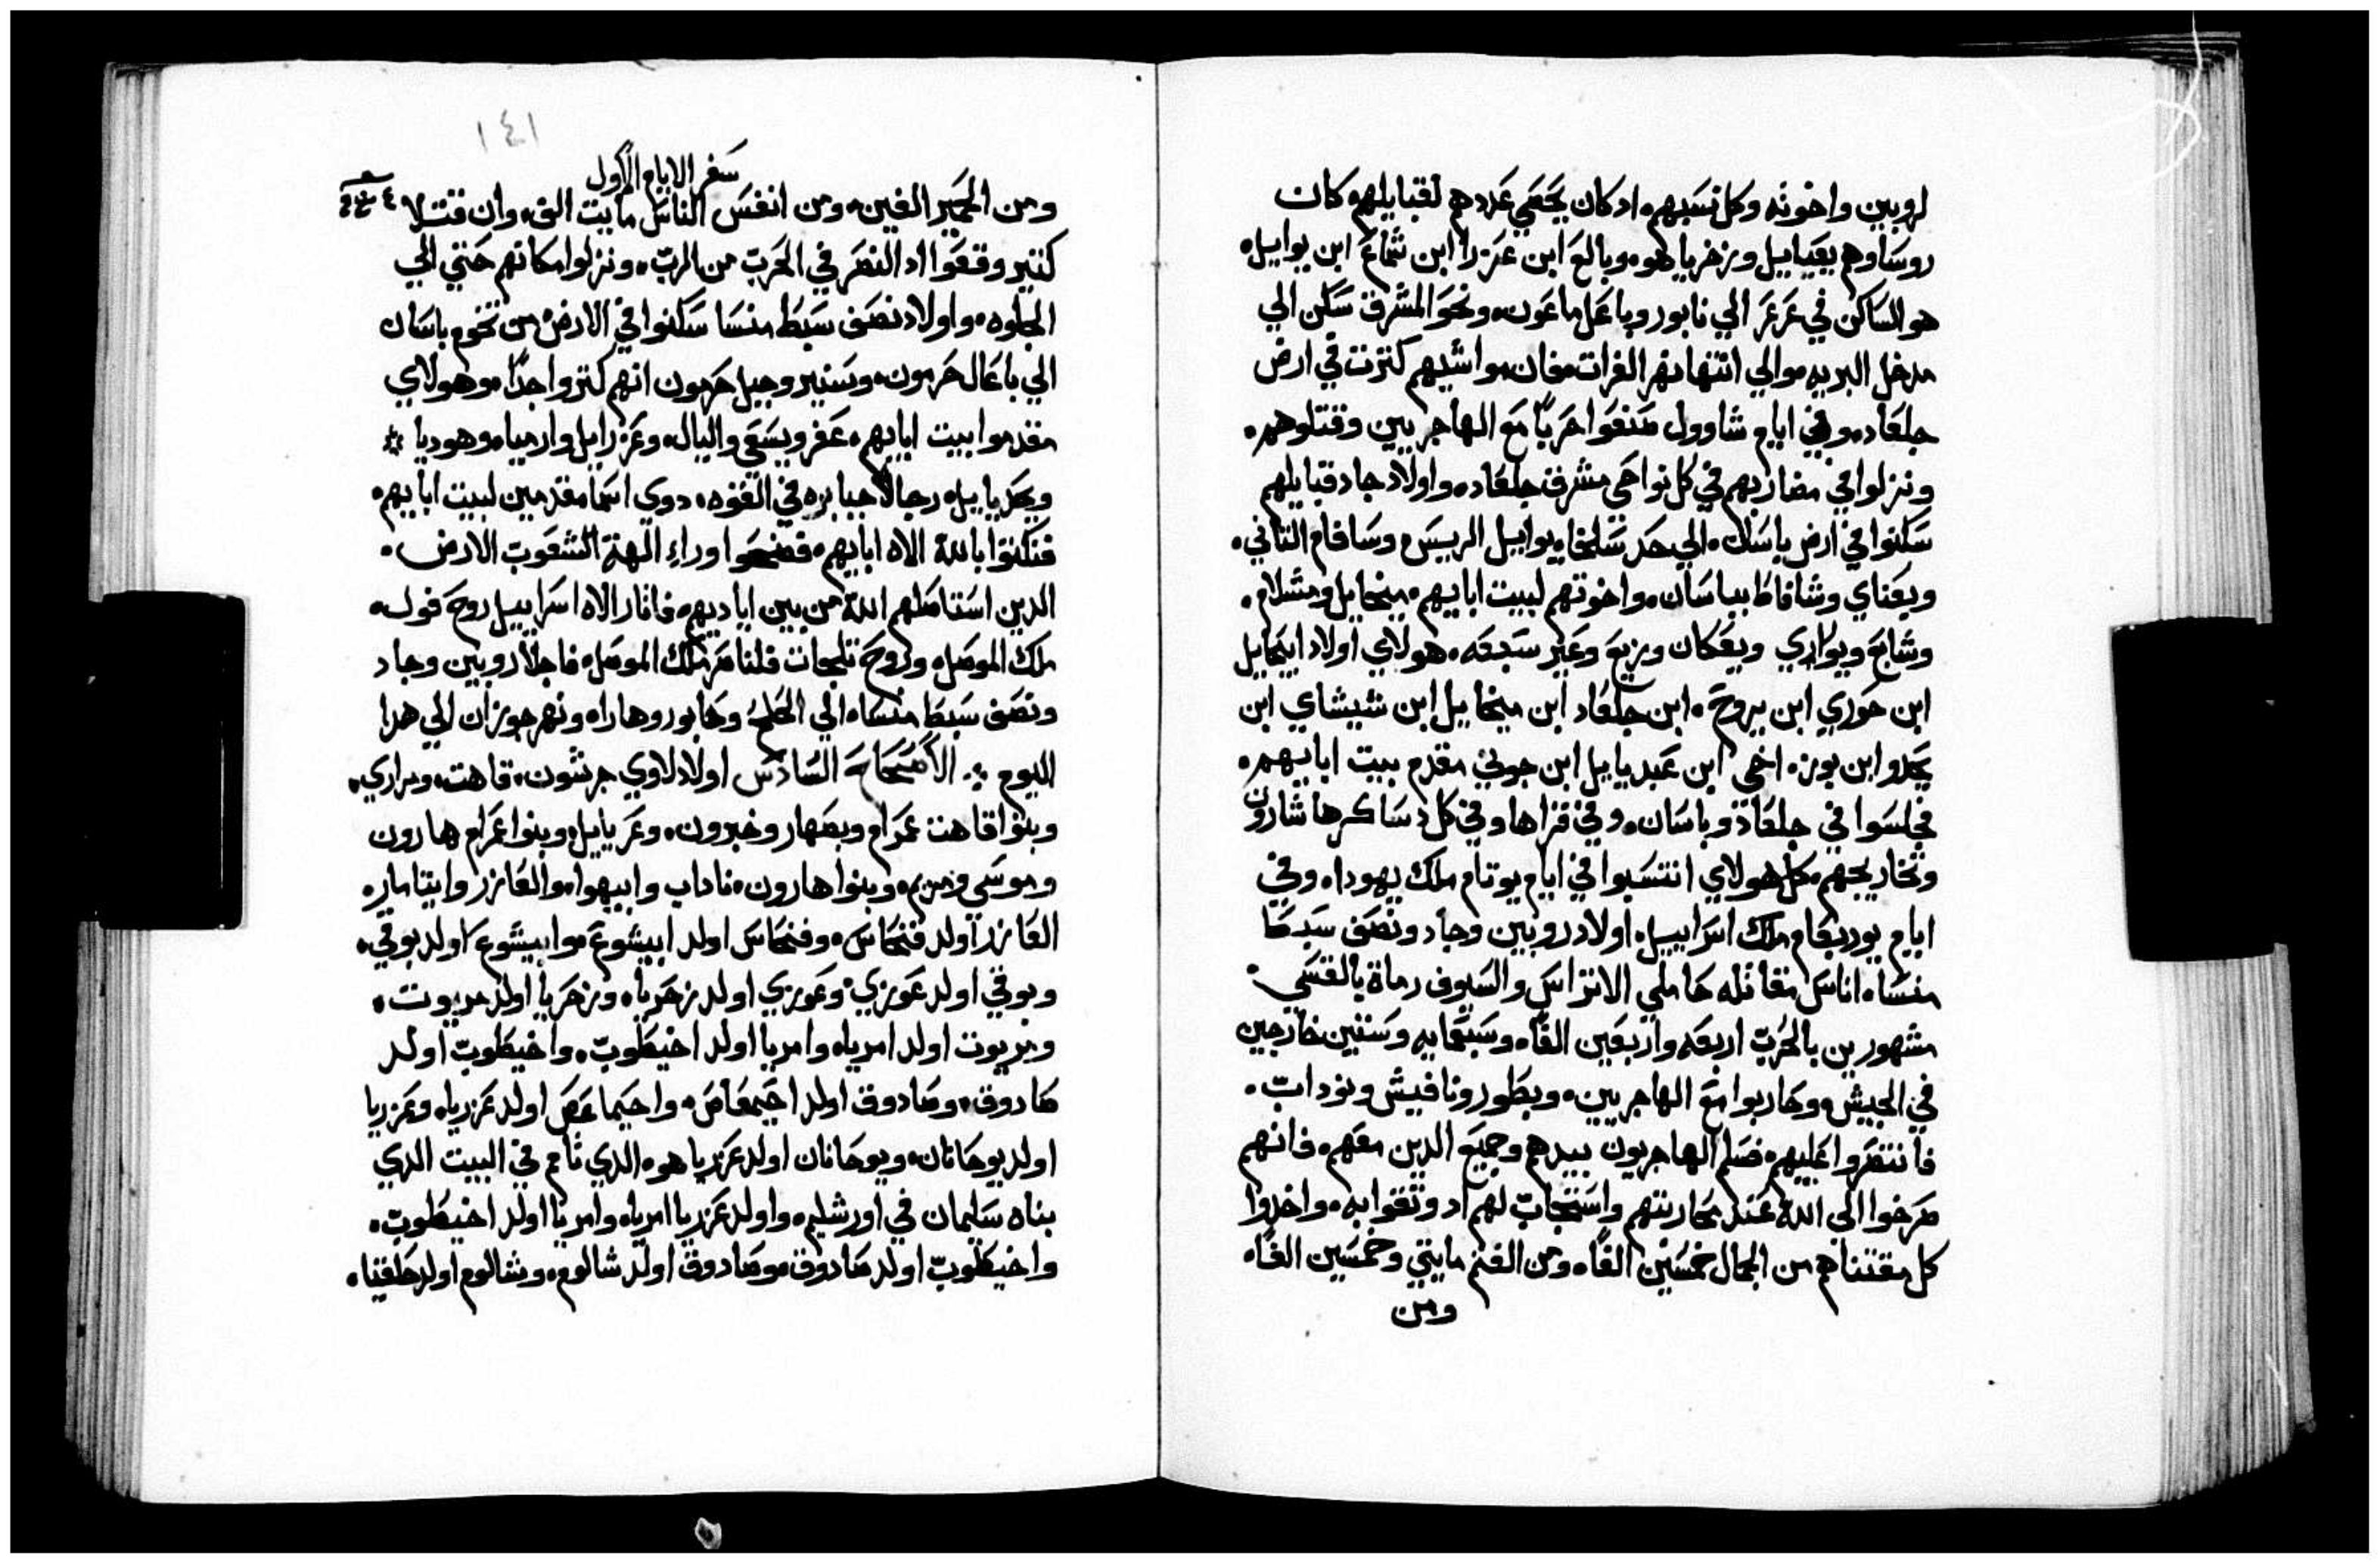 لروبين واخوته وكل نسبهم، اد كان يحصي عددهم لقبايلهم كان
روساوهم يعياييل وزخرياهو، وبالع ابن عزرا ابن شماع ابن يواييل،
هو الساكن في عرعر الي نابور وباعل ماعون، ونحو المشرق سكن الي
مدخل البريه، والي انتها نهر الفرات، فان مواشيهم كترت في ارض
جلعاد، وفي ايام شاوول صنعوا حربًا مع الهاجريين وقتلوهم،
ونزلوا في مضاربهم في كل نواحي مشرق جلعاد، واولاد جاد قبايلهم
سكنوا في ارض باسان، الي حد سلخا، يواييل الريس، وسافام التاني،
ويعناي وشافاط بباسان، واخوتهم لبيت ابايهم، ميخاييل ومشلام،
وشابع ويواري ويعكان وزيع وعبر سبعه، هولاي اولاد ابيحاييل
ابن حوري ابن يروح، ابن جلعاد ابن ميخاييل ابن شيشاي ابن
يحدو ابن بوز، اخي ابن عبدياييل ابن جوني مقدم بيت ابايهم،
فجلسوا في جلعاد وباسان، وفي قراها وفي كل دساكرها شارون
وتخاريجهم، كل هولاي انتسبوا في ايام يوتام ملك يهودا، وفي
ايام يوربعام ملك اسراييل، اولاد روبين وجاد ونصف سبط
منسا، اناس مقاتله حاملي الاتراس والسيوف رماة بالقسي،
مشهورين بالحرب اربعه واربعين الفًا، وسبعمايه وستين خارجين
في الجيش، وحاربوا مع الهاجريين، ويطور ونافيش ونوداب،
فانتصروا عليهم، فسلم الهاجريون بيدهم وجميع الدين معهم، فانهم
صرخوا الي الله عند محاربتهم واستجاب لهم اد وتقوا به، واخدوا
كل مقتناهم من الجمال خمسين الفًا، ومن الغنم مايتي وخمسين الفًا،
ومن
١٤١
سفر الايام الاول
ومن الحمير الفين، ومن انفس الناس مايت الف، وان قتلا
كتير وقعوا اد النصر في الحرب من الرب، ونزلوا مكانهم حتي الي
الجلوه، واولاد نصف سبط منسا سكنوا في الارض من تخوم باسان
الي باعال حرمون، وسنير وجبل حرمون انهم كتروا جدًا، وهولاي
مقدموا بيت ابايهم، عفر ويسعي واليال، وعزراييل وارميا، وهوديا
ويحدياييل، رجالًا جبابره في القوه، دوي اسما مقدمين لبيت ابايهم،
فنكتوا بالله الاه ابايهم، فضحوا وراء الهة الشعوب الارض،
الدين استاصلهم الله من بين اياديهم، فانار الاه اسراييل روح فول،
ملك الموصل، وروح تلجات فلناصر ملك الموصل، فاجلا روبين وجاد
ونصف سبط منسا، الي الحلح وحابور وهارا، ونهر جوزان الي هدا
اليوم ۞ الاصحاح السادس اولاد لاوي جرشون، قاهت، ومراري،
وبنوا قاهت عمرام ويصهار وخبرون، وعزياييل، وبنوا عمرام هارون
وموسي ومريم، وبنوا هارون، ناداب وابيهوا، والعازر وايتامار،
العازر اولد فنحاس، وفنحاس اولد ابيشوع، وابيشوع اولد بوقي،
وبوقي اولد عوزي، وعوزي اولد زحريا، وزحريا اولد مريوت،
ومريوت اولد امريا، وامريا اولد اخيطوب، واخيطوب اولد
صادوق، وصادوق اولد احيمعاص، واحيماعص اولد عزريا، وعزريا
اولد يوحانان، ويوحانان اولد عزريا هو، الدي تامم في البيت الدي
بناه سليمان في اورشليم، واولد عزريا امريا، وامريا اولد اخيطوب،
واخيطوب اولد صادوق، وصادوق اولد شالوم، وشالوم اولد حلقيا،